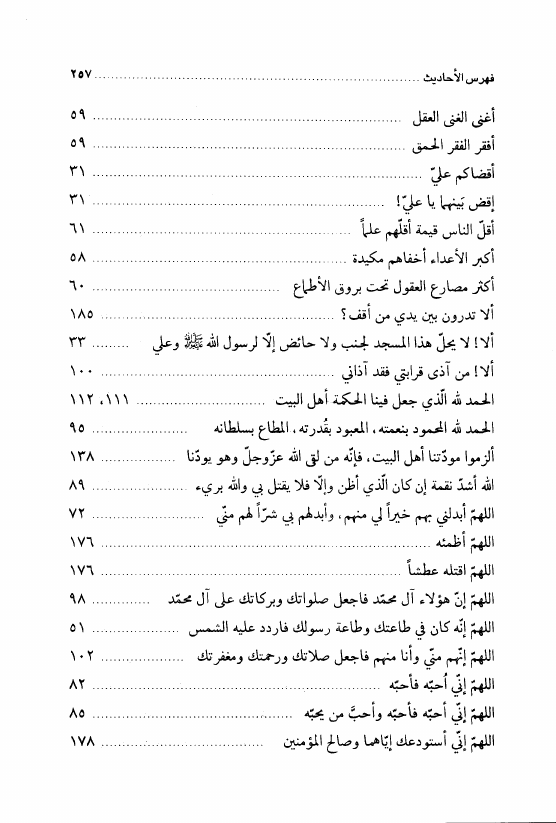 فهرس الأحاديث ................ ٢٥٧
أغنى الغنى العقل ................ ٥٩
أفقر الفقر الحمق ................ ٥٩
أقضاكم عليّ ................ ٣١
إقض بَينهما يا عليّ! ................ ٣١
أقلّ الناس قيمة أقلّهم علماً ................ ٦١
أكبر الأعداء أخفاهم مكيدة ................ ٥٨
أكثر مصارع العقول تحت بروق الأطماع ................ ٦٠
ألا تدرون بين يدي من أقف؟ ................ ١٨٥
ألا! لا يحلّ هذا المسجد لجنب ولا حائض إلّا لرسول الله ﷺ وعلي ......... ٣٣
ألا! من آذى قرابتي فقد آذاني ................ ١٠٠
الحمد لله الّذي جعل فينا الحكمة أهل البيت ................ ١١١، ١١٢
الحمد لله المحمود بنعمته، المعبود بقُدرته، المطاع بسلطانه ................ ٩٥
ألزموا مودّتنا أهل البيت، فإنّه من لقى الله عزّوجلّ وهو يودّنا ................ ١٣٨
الله أشدّ نقمة إن كان الّذي أظن وإلّا فلا يقتل بي والله بريء ................ ٨٩
اللهمّ أبدلني بهم خيراً لي منهم، وأبدلهم بي شرّاً لهم منّي ................ ٧٢
اللهمّ أظمئه ................ ١٧٦
اللهمّ اقتله عطشاً ................ ١٧٦
اللهمّ إنّ هؤلاء آل محمّد فاجعل صلواتك وبركاتك على آل محمّد ............ ٩٨
اللهمّ إنّه كان في طاعتك وطاعة رسولك فاردد عليه الشمس ................ ٥١
اللهمّ إنّهم منّي وأنا منهم فاجعل صلاتك ورحمتك ومغفرتك ................ ١٠٢
اللهمّ إنّي اُحبّه فأحبّه ................ ٨٢
اللهمّ إنّي أحبّه فأحبّه وأحبَّ من يحبّه ................ ٨٥
اللهمّ إنّي أستودعك إيّاهما وصالح المؤمنين ................ ١٧٨